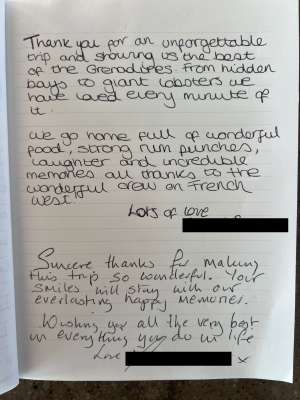 Thank you for an unforgettable
trip and showing us the best
of the Grenadines. From hidden
bays to giant lobsters we
have loved every minute of
it.
We go home full of wonderful
food, strong rum punches,
laughter and incredible
memories all thanks to the
wonderful crew on French
West.
Lots of love
Sincere thanks for making
this trip so wonderful. Your
smiles will stay with our
everlasting happy memories.
Wishing you all the very best
in everything you do in life
Love
x